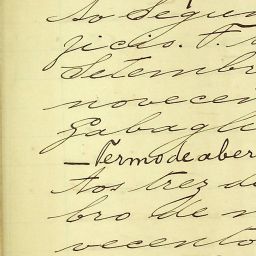 do Segun
ficis. F.
Setembr
novecen
Gabagli
— Termo de aber
Aos trez de
bro de n
vecento